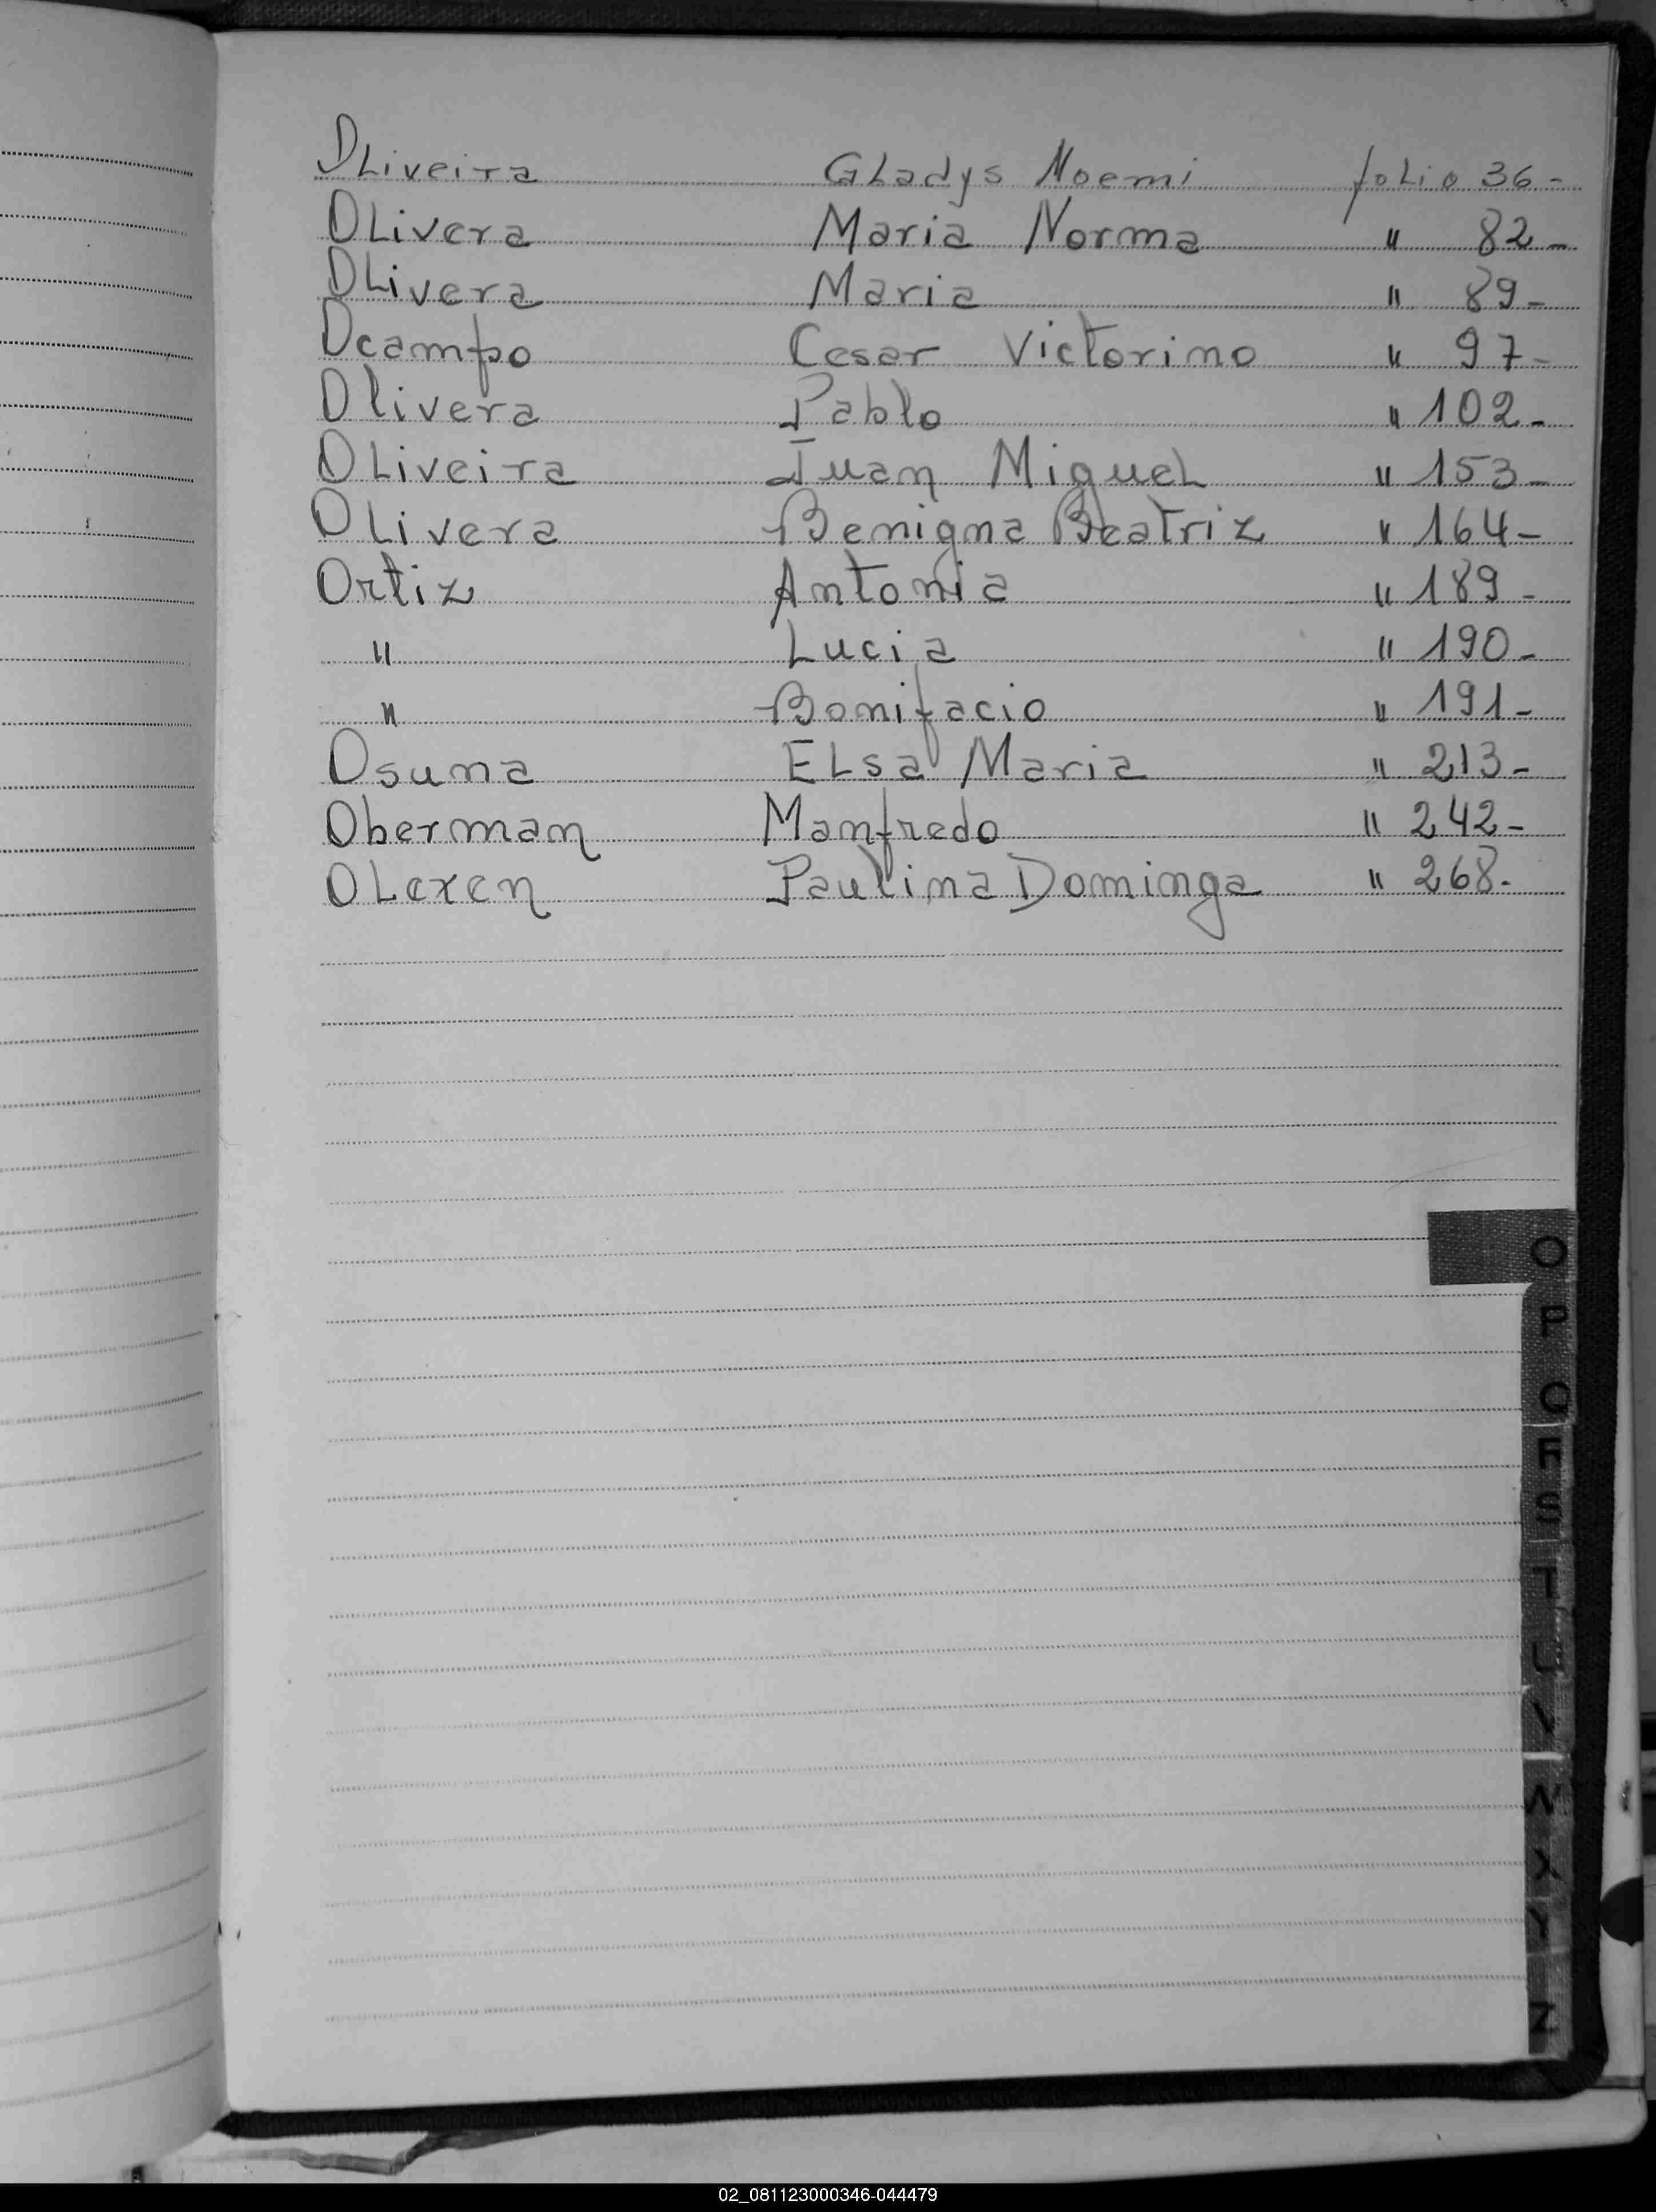 Oliveira Gladys Noemi folio 36-
Olivera Maria Norma " 82-
Olivera Maria " 89-
Ocampo Cesar Victorino " 97-
Olivera Pablo " 102-
Oliveira Juan Miguel " 153-
Olivera Benigna Beatriz " 164-
Ortiz Antonia " 189-
" Lucia " 190-
" Bonifacio " 191-
Osuna Elsa Maria " 213-
Oberman Manfredo " 242-
Olexen Paulina Dominga " 268.
O
P
Q
R
S
T
U
V
W
X
Y
Z
02_081123000346-044479